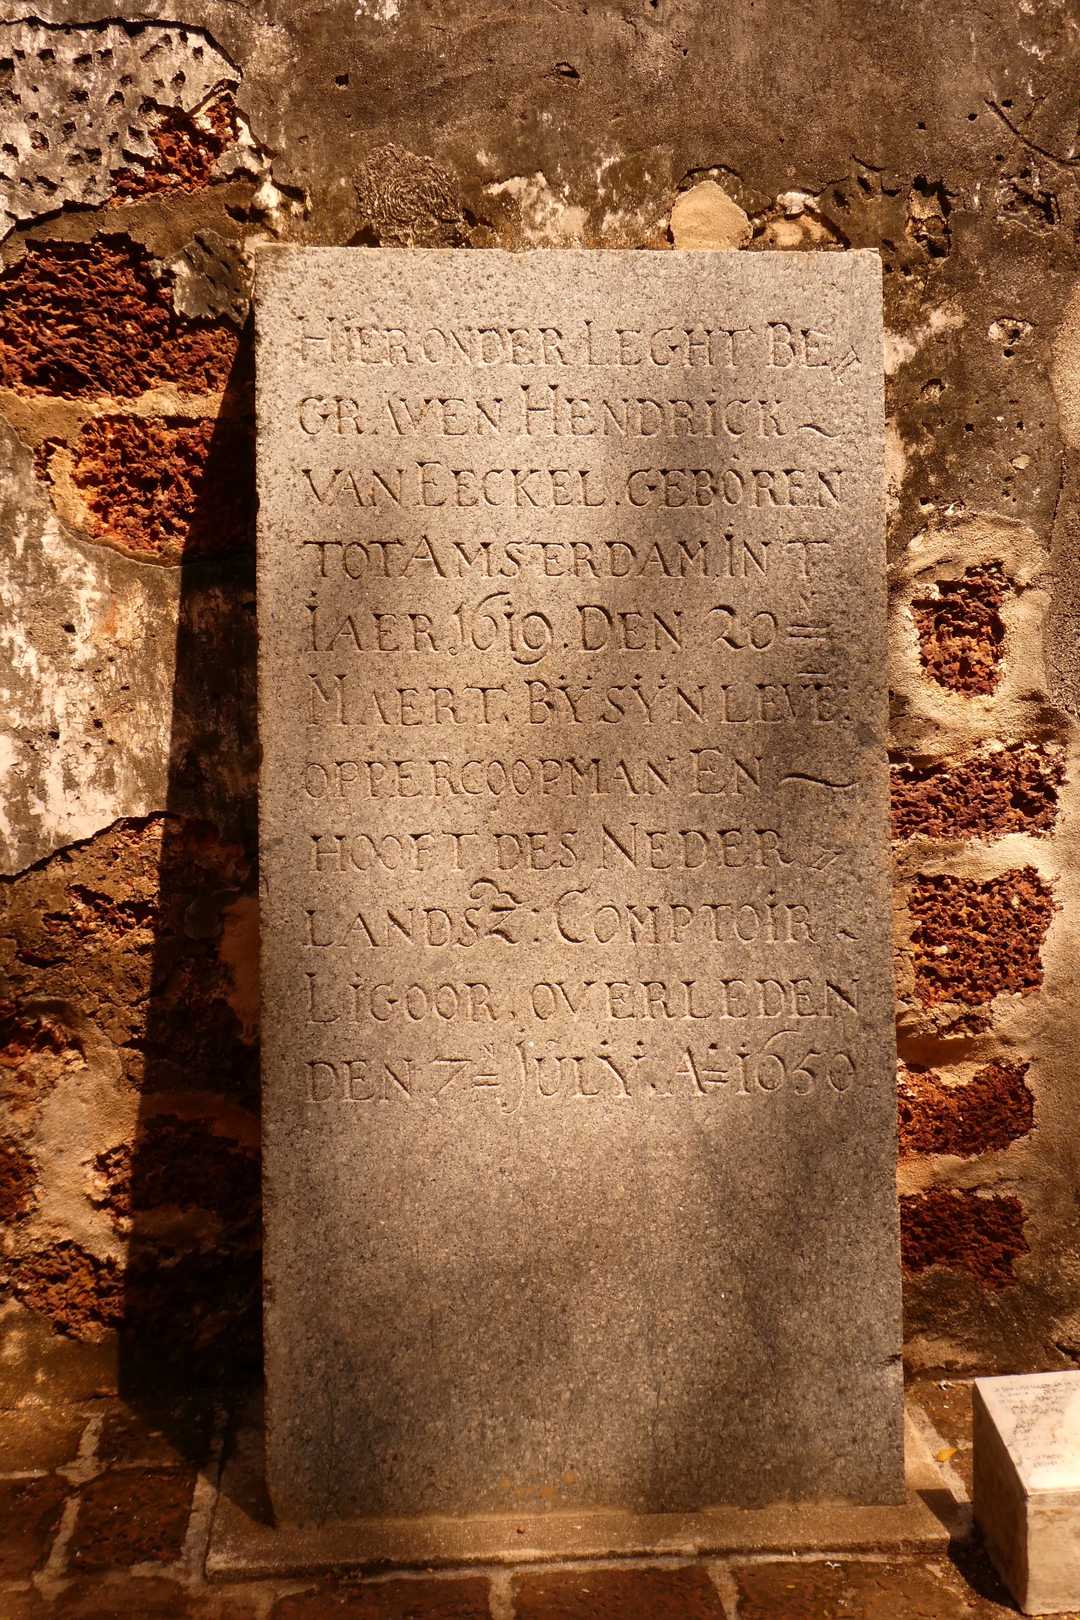 HIERONDER LEGHT BE=
GRAVEN HENDRICK ~
VAN EECKEL. GEBOREN
TOT AMSTERDAM. IN T
IAER. 1619. DEN 20=
MAERT. BŸ SŸN LEVE:
OPPERCOOPMAN EN ~
HOOFT DES NEDER =
LANDSZ: COMPTOIR ~
LIGOOR, OVERLEDEN
DEN 7= JULŸ. A= 1650